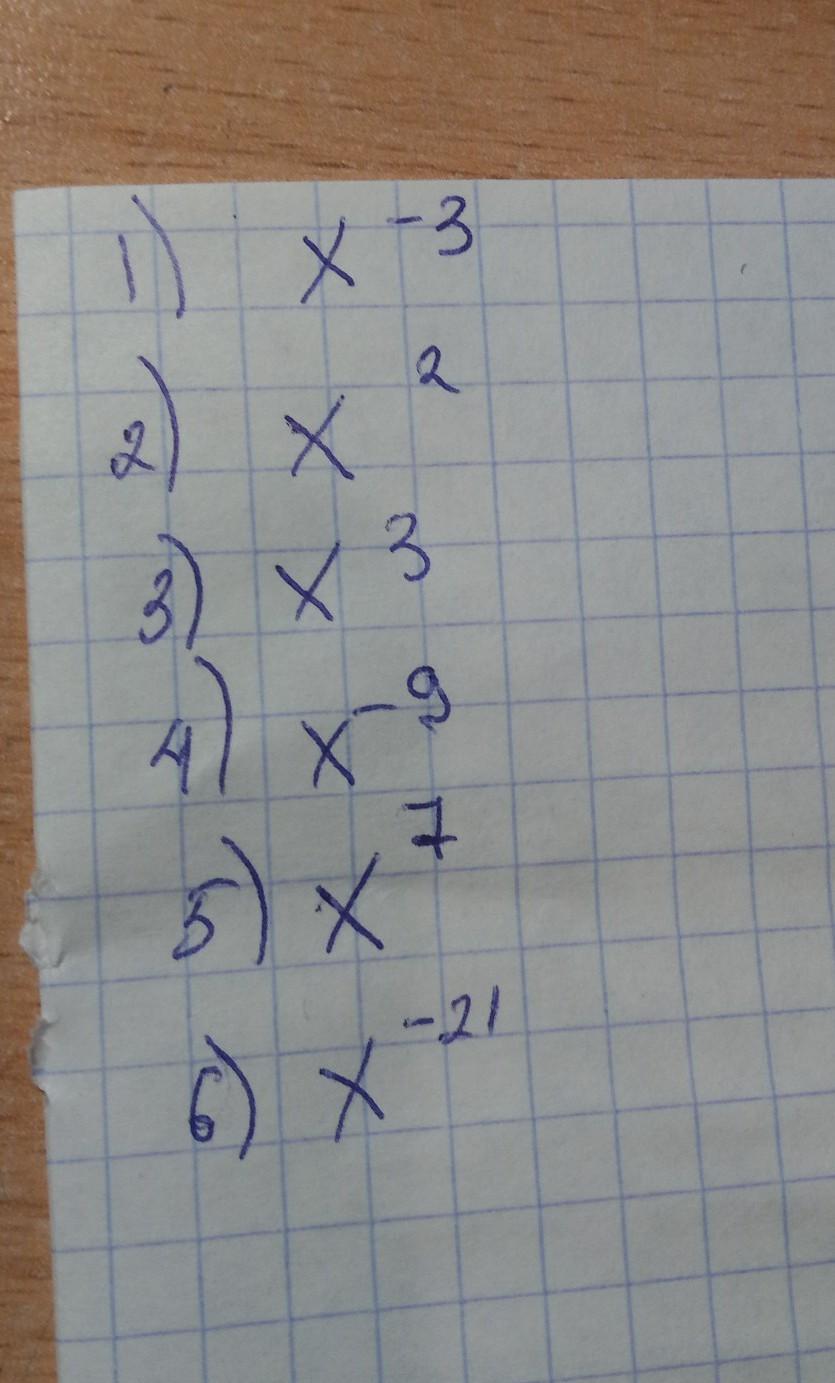 1) x⁻³
2) x²
3) x³
4) x⁻⁹
5) x⁷
6) x⁻²¹